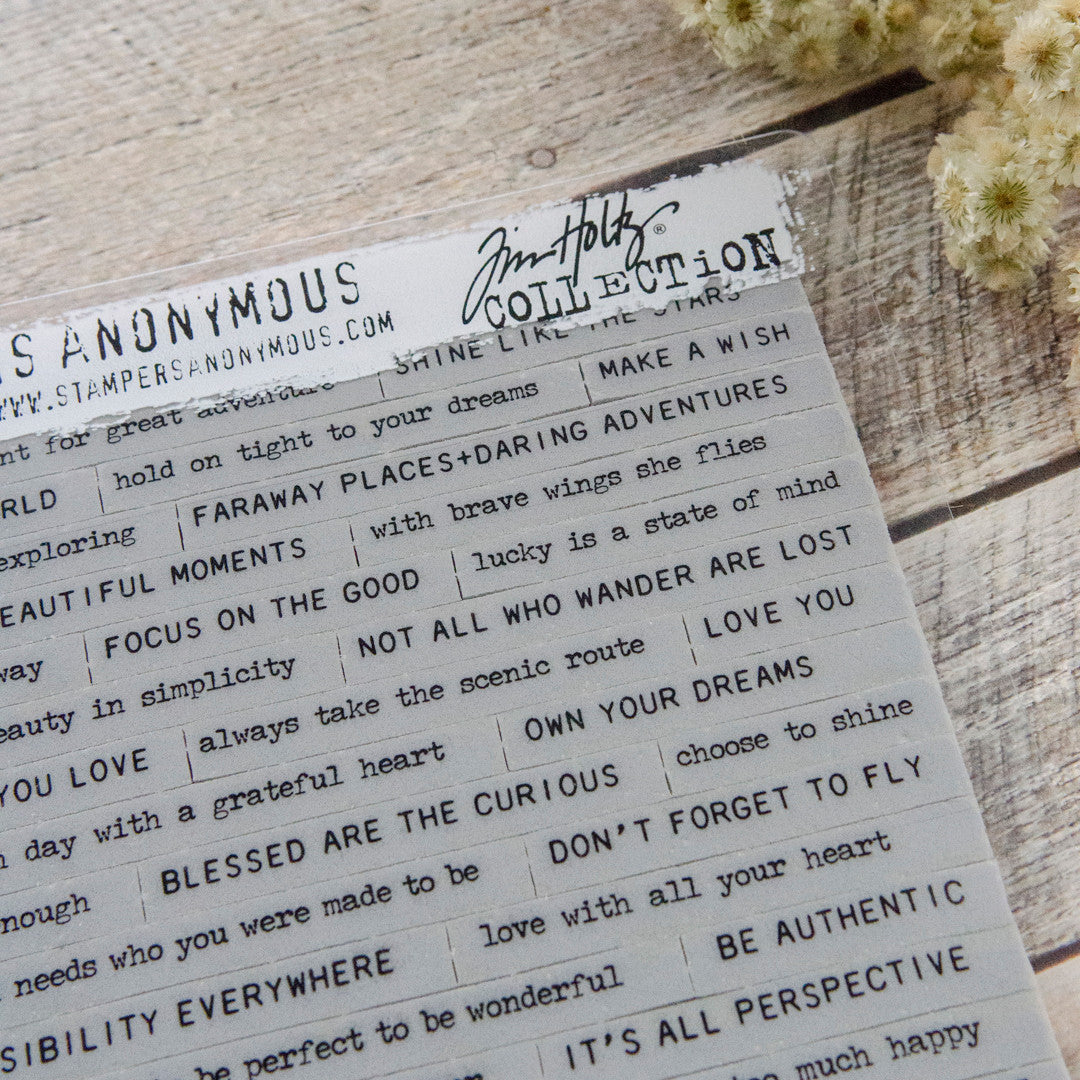 Tim Holtz®
ANONYMOUS COLLECTION
WWW.STAMPERSANONYMOUS.COM
SHINE LIKE THE STARS
for great adventure MAKE A WISH
hold on tight to your dreams
FARAWAY PLACES+DARING ADVENTURES
exploring with brave wings she flies
MOMENTS lucky is a state of mind
FOCUS ON THE GOOD NOT ALL WHO WANDER ARE LOST
in simplicity always take the scenic route LOVE YOU
YOU LOVE OWN YOUR DREAMS
day with a grateful heart choose to shine
BLESSED ARE THE CURIOUS DON'T FORGET TO FLY
needs who you were made to be love with all your heart
EVERYWHERE BE AUTHENTIC
be perfect to be wonderful IT'S ALL PERSPECTIVE
much happy